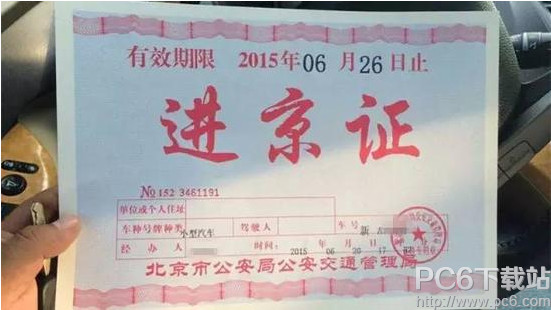 有效期限 2015年06月26日止
进京证
№ 152 3461191
单位或个人住址
车种号牌种类 小型汽车 驾驶人 车号 新
经办人 时间: 2015年06月20 17
北京市公安局公安交通管理局
PC6下载站
http://www.pc6.com